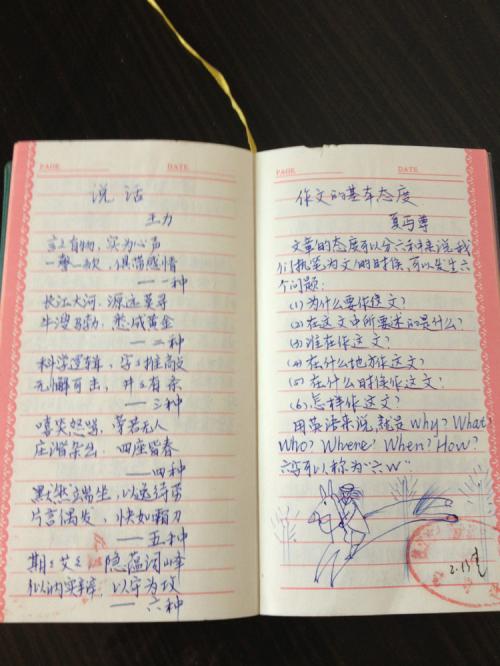 PAGE
DATE
说话
王力
言之有物，实为心声
一謦一欬，俱带感情
——一种
长江大河，源远莫寻
牛溲马勃，悉成黄金
——二种
科学逻辑，字字推敲
无懈可击，井井有条
——三种
嘻笑怒骂，旁若无人
庄谐杂出，四座皆春
——四种
默然端坐，以逸待劳
片言偶发，快如霜刀
——五种
期期艾艾，隐蕴词峰
似讷实辩，以守为攻
——六种
PAGE
DATE
作文的基本态度
夏丏尊
文章的态度可以分六种来说，我
们执笔为文的时候，可以发生六
个问题：
(1)为什么要作这文？
(2)在这文中所要述的是什么？
(3)谁在作这文？
(4)在什么地方作这文？
(5)在什么时候作这文？
(6)怎样作这文？
用英语来说，就是Why? What?
Who? Where? When? How?
六字可以称为“六W”